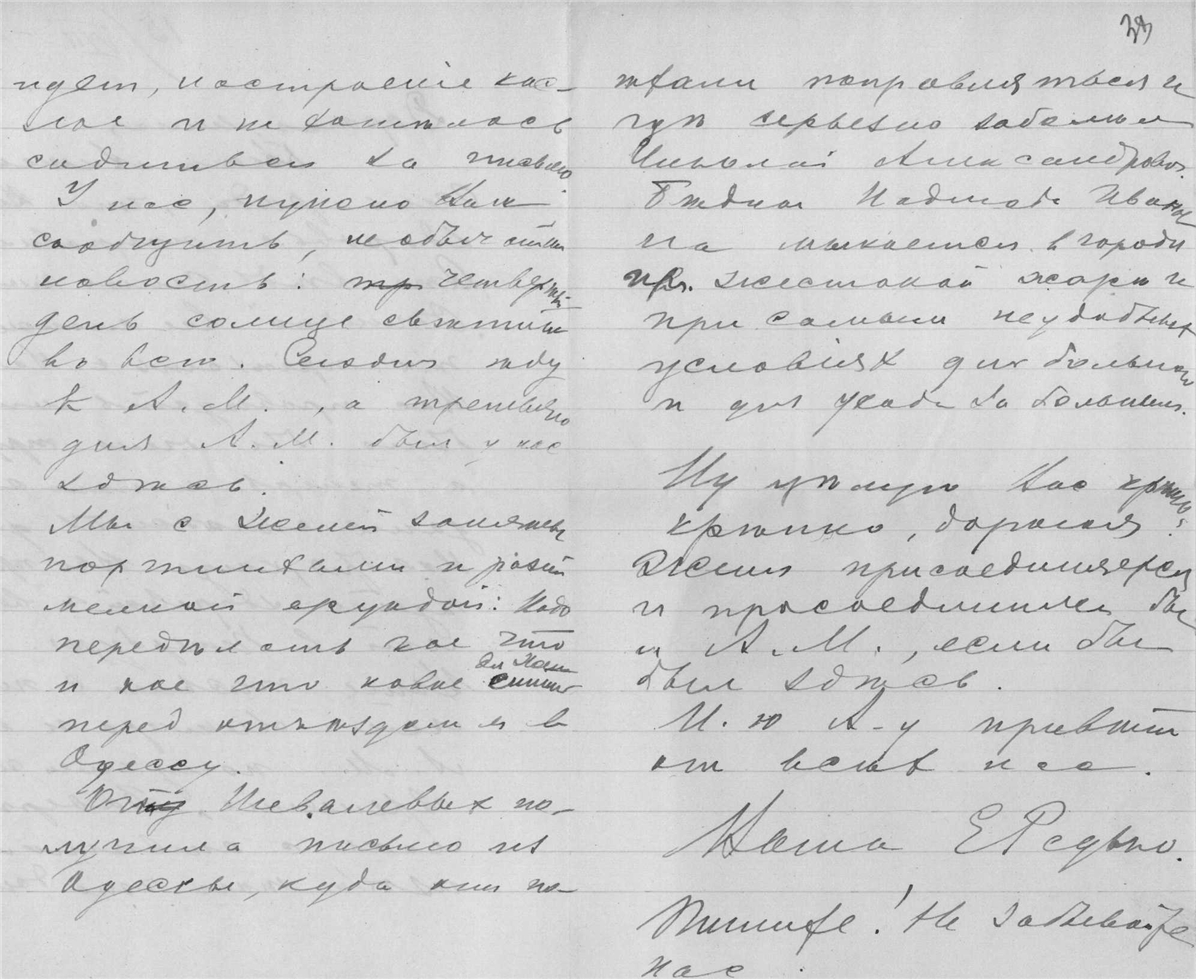 идет, настроение кис-
лое и не хотелось
садиться за письмо.
У нас, нужно Вам
сообщить, необычайная
новость: четвертый
день солнце светит
во всю. Сегодня жду
к А.М., а третьего
дня А.М. был у нас
здесь.
Мы с Женей заняты
портнихами и разной
мелкой ерундой: надо
переделать кое что
и кое что новое
перед отъездом в
Одессу.
От Шевалевых по-
лучила письмо из
Одессы, куда они по-
23
ехали поправляться и
тут серьезно заболел
Николай Александрович.
Бедная Надежда Иванов
на мыкается в городе
при жестокой жаре и
при самых неудобных
условиях для больного
и для ухода за больным.
Ну целую Вас крепко-
крепко, дорогая.
Женя присоединяется
и присоединился бы
и А.М., если бы
был здесь.
И. ю А-у привет
от всех нас.
Ваша Е Редько.
Пишите! Не забывайте
нас